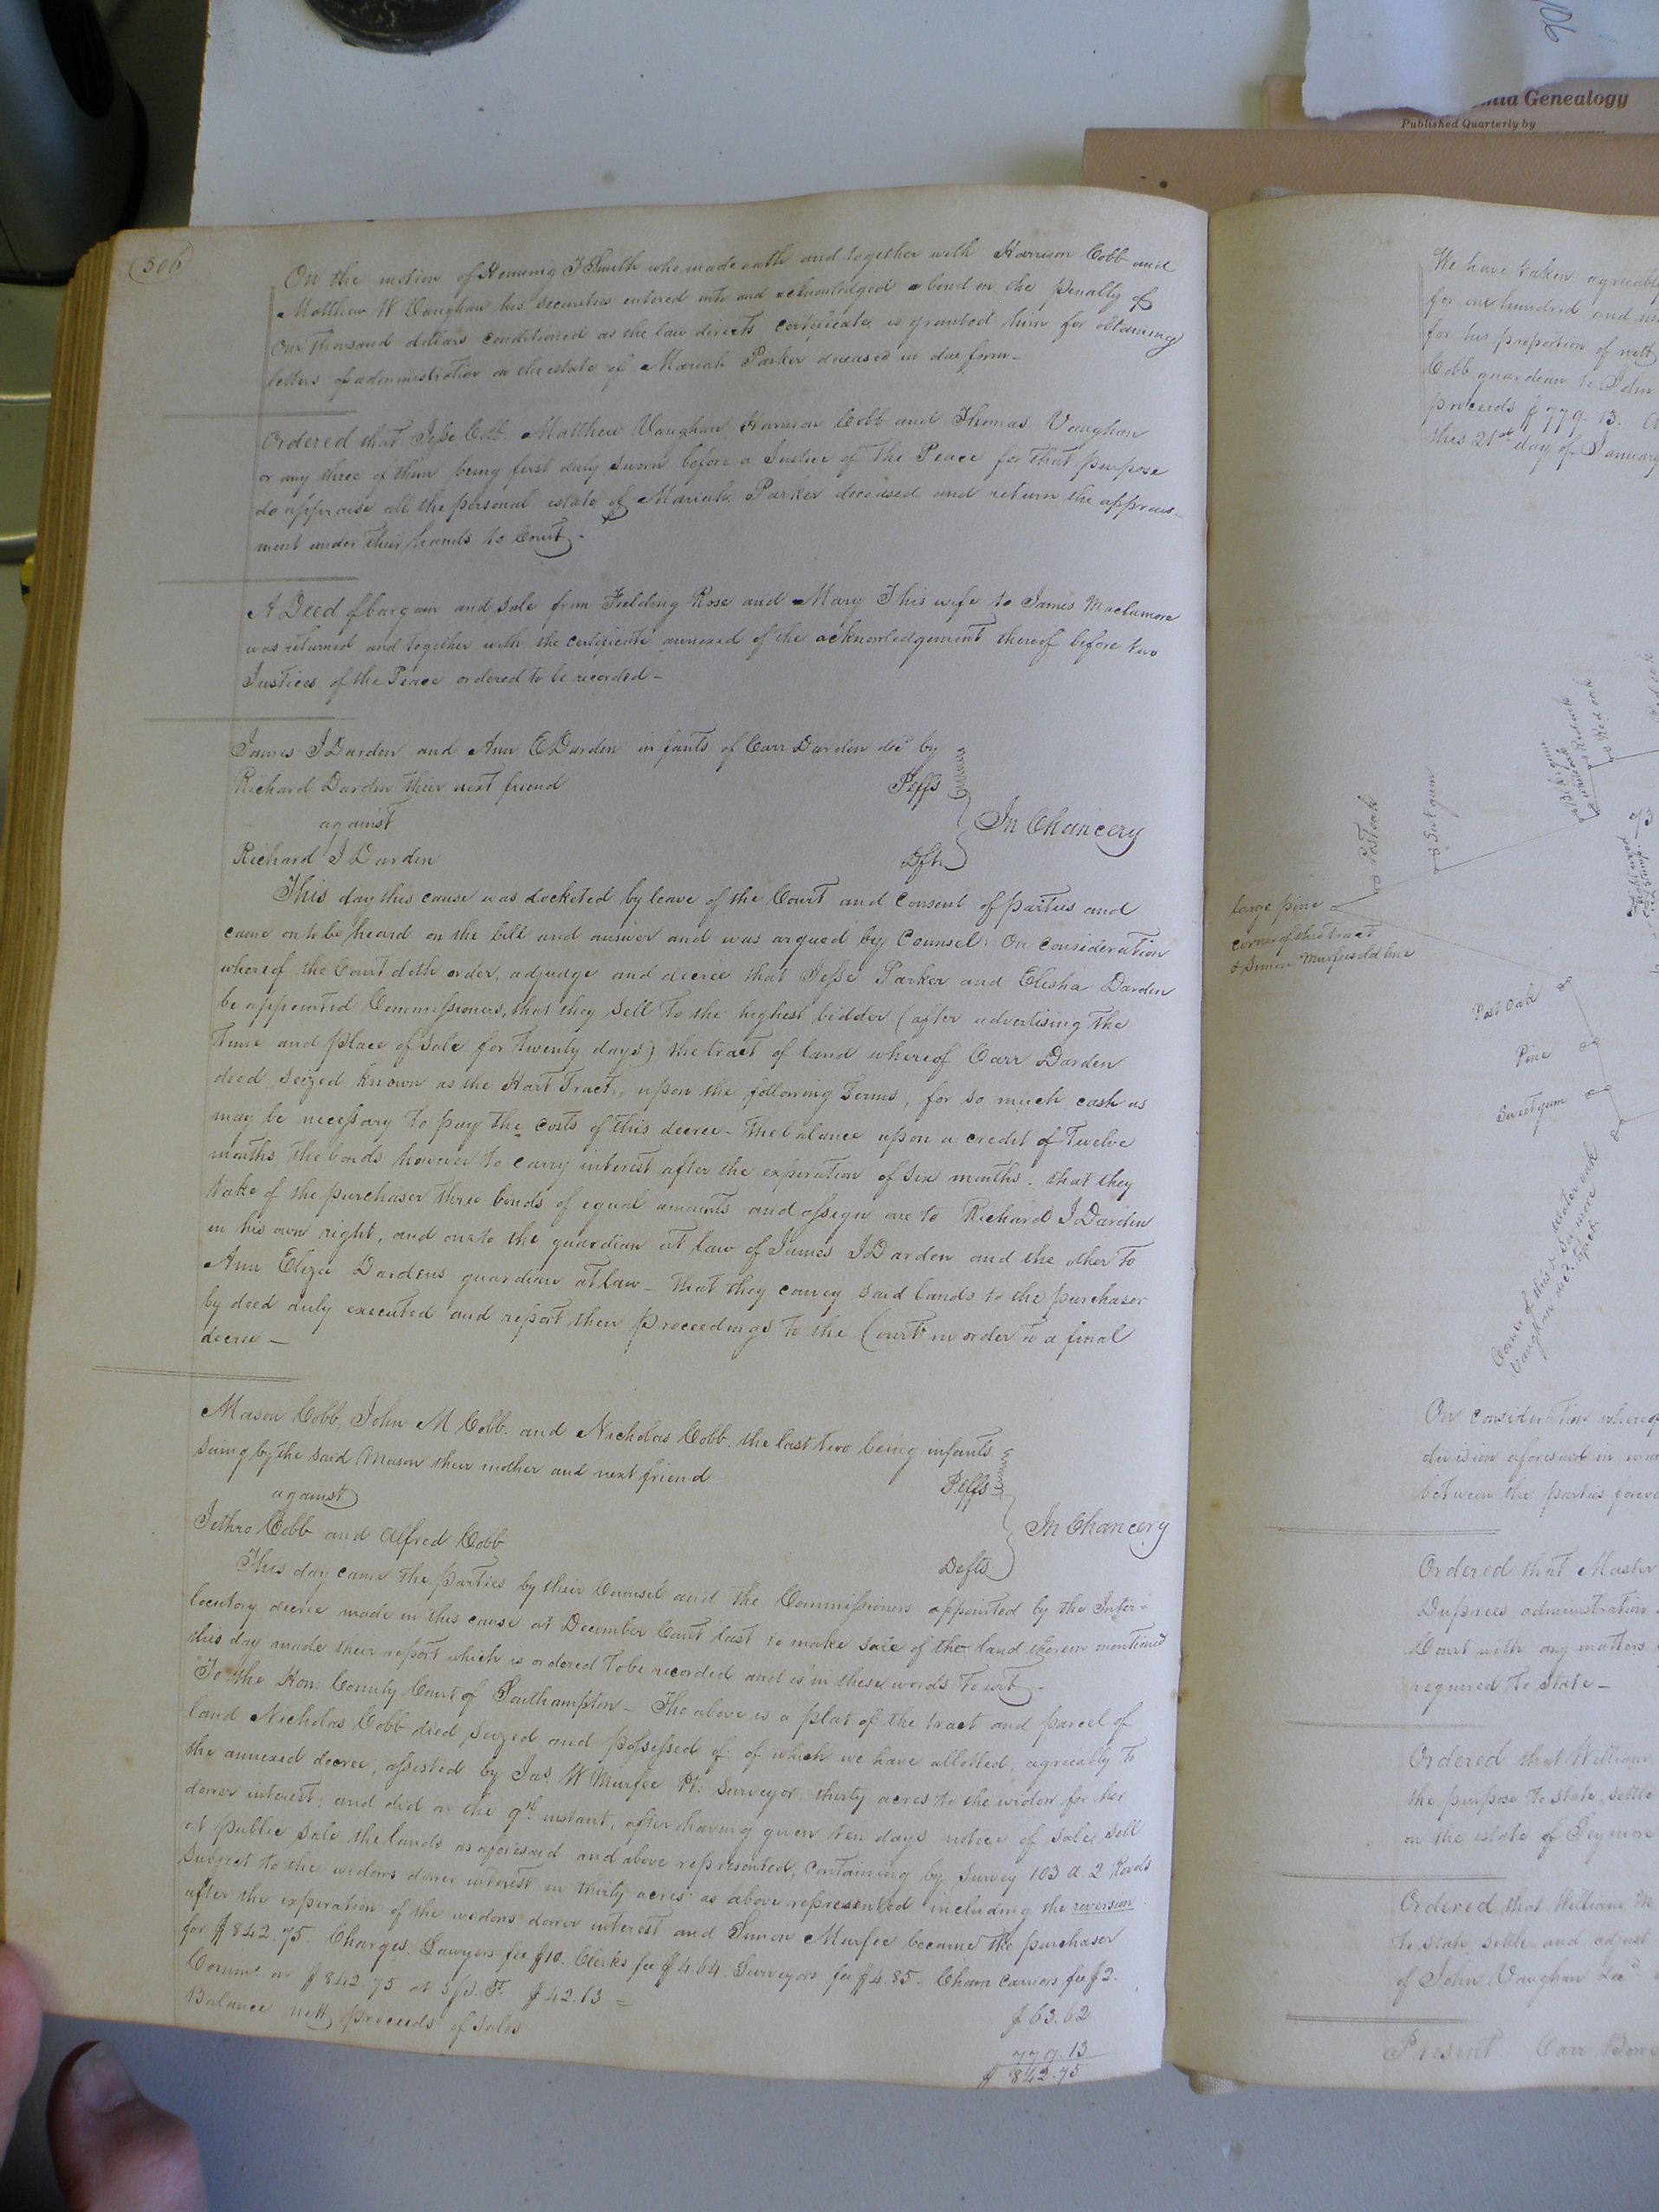 (306)
On the motion of Henning T Smith who made oath and together with Harrison Cobb and
Matthew W Vaughan his securities entered into and acknowledged a bond in the penalty of
One thousand dollars conditioned as the law directs certificate is granted him for obtaining
letters of administration on the estate of Mariah Parker deceased in due form -
Ordered that Jesse Cobb, Matthew Vaughan, Harrison Cobb and Thomas Vaughan
or any three of them being first duly sworn before a Justice of the Peace for that purpose
do appraise all the personal estate of Mariah Parker deceased and return the apprais-
ment under their hands to Court -
A Deed of bargain and sale from Fielding Rose and Mary T his wife to James Maclamore
was returned and together with the certificate annexed of the acknowledgement thereof before two
Justices of the Peace ordered to be recorded -
James J Darden and Ann E Darden infants of Carr Darden decd by
Richard Darden their next friend Pltffs
against
In Chancery
Richard J Darden Dft
This day this cause was docketed by leave of the Court and consent of parties and
came on to be heard on the bill and answer and was argued by Counsel. On consideration
whereof the Court doth order, adjudge and decree that Jesse Parker and Elisha Darden
be appointed Commissioners, that they sell to the highest bidder (after advertising the
time and place of sale for twenty days) the tract of land whereof Carr Darden
died seized known as the Hart Tract, upon the following terms, for so much cash as
may be necessary to pay the costs of this decree - the balance upon a credit of twelve
months the bonds however to carry interest after the expiration of six months. that they
take of the purchaser three bonds of equal amounts and assign one to Richard J Darden
in his own right, and one to the guardian at law of James J Darden and the other to
Ann Eliza Dardens guardian at law - that they convey said lands to the purchaser
by deed duly executed and report their proceedings to the Court in order to a final
decree -
Mason Cobb, John M Cobb. and Nicholas Cobb. the last two being infants
suing by the said Mason their mother and next friend Pltffs
against
In Chancery
Jethro Cobb and Alfred Cobb Defts
This day came the parties by their Counsel and the Commissioners appointed by the Inter-
locutory decree made in this cause at December Court last to make sale of the land therein mentioned
this day made their report which is ordered to be recorded and is in these words to wit -
To the Hon: County Court of Southampton - The above is a plat of the tract and parcel of
land Nicholas Cobb died seized and possessed of: of which we have allotted, agreeably to
the annexed decree, assisted by Jas W Murfee Surveyor, thirty acres to the widow for her
dower interest; and did on the 9th instant, after having given ten days notice of sale, sell
at public sale the lands as aforesaid and above represented, containing by survey 103 a. 2 Roods
subject to the widows dower interest in thirty acres as above represented including the reversion
after the expiration of the widows dower interest and Simon Murfee became the purchaser
for $842.75. Charges. Lawyers fee $10. Clerks fee $4.64. Surveyors fee $4.85. Chain carriers fee $2.
Comms on $842.75 at 5 pr. Ct. $42.13 =
$63.62
Balance nett proceeds of sales
779.13
$842.75
Genealogy
Published Quarterly by
We have taken agreeably
for one hundred and
for his proportion of nett
Cobb guardian to John
proceeds $779.13.
this 21st day of January
Post oak
Sweet gum
large pine
corner of this tract
& Simon Murfees old line
Post Oak
Pine
Sweet gum
On consideration whereof
division aforesaid in
between the parties forever
Ordered that Master
Duprees administration
Court with any matters
required to State -
Ordered that William
the purpose to state, settle
on the estate of Seymore
Ordered that William M
to state, settle and adjust
of John Vaughan decd
Present Carr